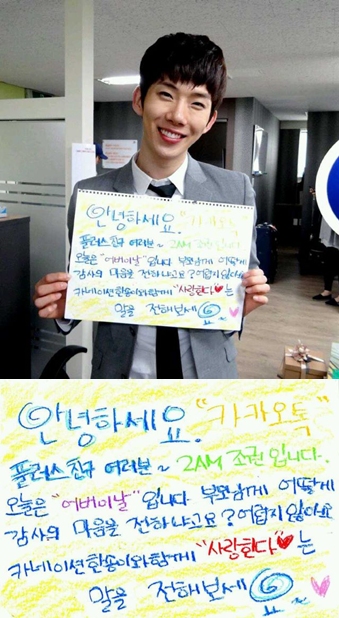 안녕하세요. "카카오톡"
플러스친구 여러분~ 2AM 조권 입니다.
오늘은 "어버이날" 입니다 부모님께 어떻게
감사의 마음을 전하냐고요? 어렵지않아요
카네이션한송이와함께 "사랑한다♥" 는
말을 전해보세요
안녕하세요. "카카오톡"
플러스친구 여러분~ 2AM 조권입니다.
오늘은 "어버이날" 입니다 부모님께 어떻게
감사의 마음을 전하냐고요? 어렵지않아요
카네이션한송이와함께 "사랑한다♥" 는
말을 전해보세요